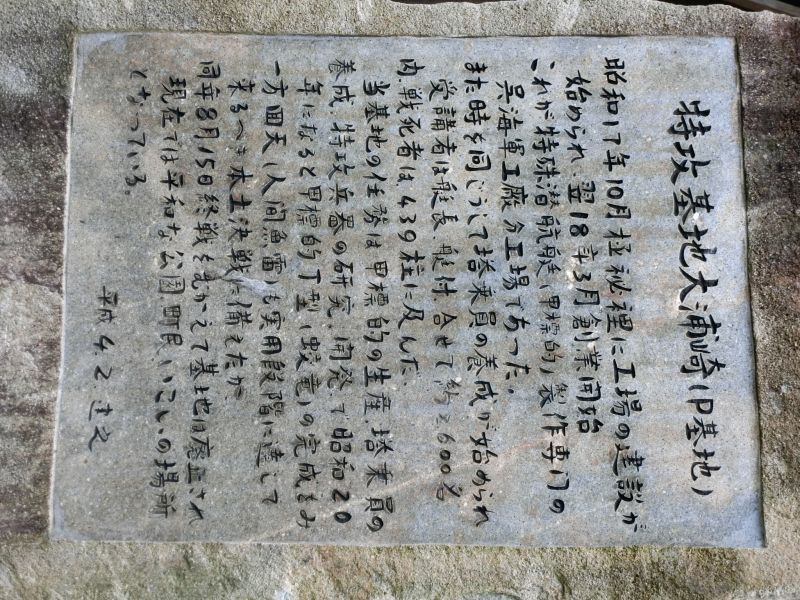 特攻基地大浦崎(P基地)
昭和17年10月極秘裡に工場の建設が
始められ、翌18年3月創業開始
これが特殊潜航艇(甲標的)製作専門の
呉海軍工廠分工場であった。
また時を同じうして搭乗員の養成が始められ
受講者は艇長、艇付合せて約2600名
内、戦死者は439柱に及んだ
当基地の任務は甲標的の生産、搭乗員の
養成、特攻兵器の研究、開発で昭和20
年になると甲標的丁型(蛟竜)の完成をみ
一方回天(人間魚雷)も実用段階に達して
来るべき本土決戦に備えたが
同年8月15日終戦をむかえて基地は廃止され
現在では平和な公園、町民いこいの場所
となっている。
平成4.2建之